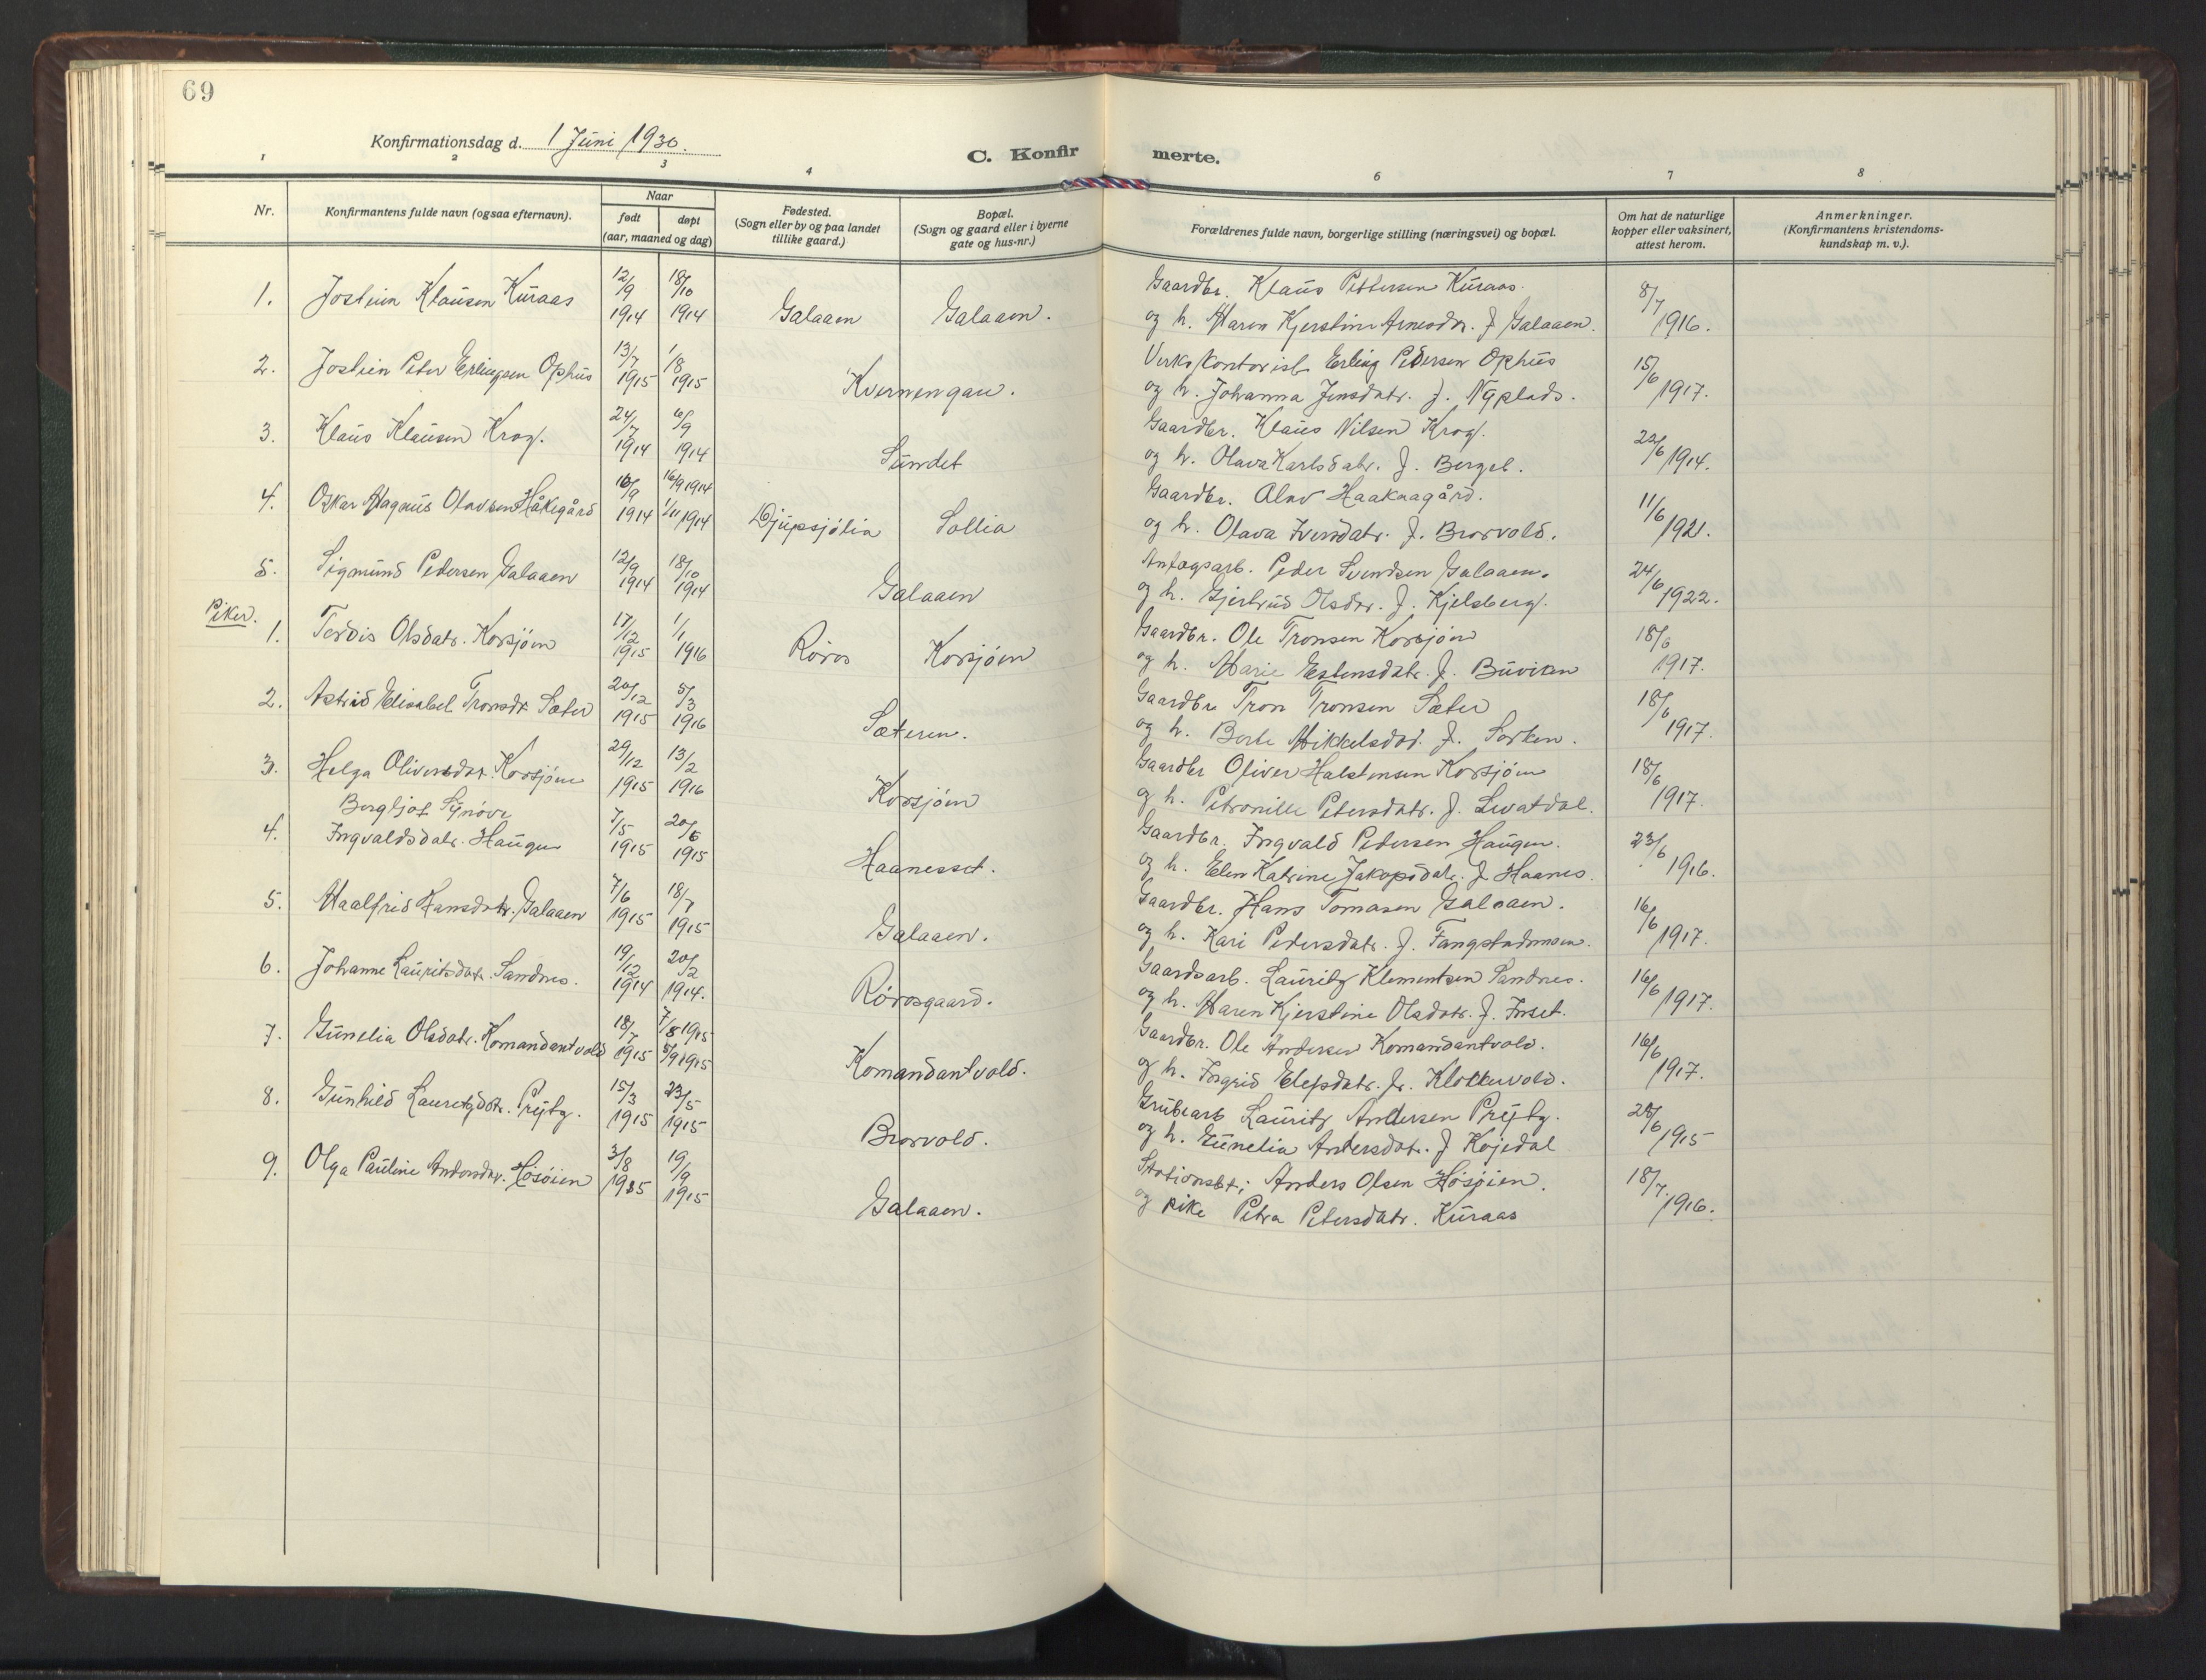 69
Konfirmationsdag d. 1 Juni 1930.
C. Konfirmerte.
1 2 3 4 6 7 8
Nr.
Konfirmantens fulde navn (ogsaa efternavn).
Naar
født døpt
(aar, maaned og dag)
Fødested.
(Sogn eller by og paa landet
tillike gaard.)
Bopæl.
(Sogn og gaard eller i byerne
gate og hus-nr.)
Forældrenes fulde navn, borgerlige stilling (næringsvei) og bopæl.
Om hat de naturlige
kopper eller vaksinert,
attest herom.
Anmerkninger.
(Konfirmantens kristendoms-
kundskap m. v.).
1. Jostein Klausen Kuraas 12/9 1914 18/10 1914 Galaaen Galaaen. Gaardbr. Klaus Pettersen Kuraas. 8/7 1916.
og h. Maren Kjerstine Arnesdr. f Galaaen.
2. Jostein Peter Erlingsen Ophus 13/7 1915 1/8 1915 Kvernengan. Verkskontorist Erling Pedersen Ophus 15/6 1917.
og h. Johanna Jensdatr. f. Nyplads.
3. Klaus Klausen Krog. 24/7 1914 6/9 1914 Sundet Gaardbr. Klaus Nilsen Krog. 22/6 1914.
og h. Olava Karlsdatr. f. Berget.
4. Oskar Magnus Olavsen Håkegård 10/9 1914 16/9 1914 1/11 1914 Djupsjølia Sollia Gaardbr. Olav Haakaagård. 11/6 1921.
og h. Olava Iversdatr. f. Brorvold.
5. Sigmund Pedersen Galaaen 12/9 1914 18/10 1914 Galaaen Anlægsarb. Peder Svendsen Galaaen. 24/6 1922.
og h. Gjertrud Olsdr. f. Kjelsberg.
Piker.
1. Tordis Olsdatr. Korsjøen 17/12 1915 1/1 1916 Røros Korsjøen Gaardbr. Ole Tronsen Korsjøen 18/6 1917.
og h. Marie Estensdatr. f. Buviken
2. Astrid Elisabet Tronsdr Sæter 20/12 1915 5/3 1916 Sæteren. Gaardbr Tron Tronsen Sæter 18/6 1917.
og h. Berte Mikkelsdat. f. Sorken.
3. Helga Oliversdatr. Korsjøen 29/12 1915 13/2 1916 Korsjøen Gaardbr Oliver Halstensen Korsjøen 18/6 1917.
og h. Petronille Petersdatr. f. Levatdal.
4. Bergljot Synøve
Ingvaldsdatr. Haugen 7/5 1915 20/6 1915 Haanesset. Gaardbr. Ingvald Pedersen Haugen. 23/6 1916.
og h. Elen Katrine Jakopsdatr. f Haanes.
5. Maalfrid Hansdatr. Galaaen 7/6 1915 18/7 1915 Galaaen. Gaardbr. Hans Tomasen Galaaen. 16/6 1917.
og h. Kari Pedersdatr. f. Fangstadmoen.
6. Johanne Lauritsdatr. Sandnes. 19/12 1914 20/2 1914. Rørosgaard. Gaardsarb. Lauritz Klementsen Sandnes. 16/6 1917.
og h. Maren Kjerstine Olsdatr. f. Inset.
7. Gunelia Olsdatr. Komandantvold 18/7 1915 7/8 1915 5/9 1915 Komandantvold. Gaardbr. Ole Andersen Komandantvold. 16/6 1917.
og h. Ingrid Elefsdatr. f. Klokkervold.
8. Gunhild Lauritzdatr. Prytz. 15/3 1915 23/5 1915 Brorvold. Grubearb Lauritz Andersen Prytz. 28/6 1915
og h. Gunelia Andersdatr. f Kojedal
9. Olga Pauline Andersdatr. Høsøien 3/8 1915 19/9 1915 Galaaen. Stationsbt; Anders Olsen Høsøien. 18/7. 1916.
og pike Petra Petersdatr. Kuraas